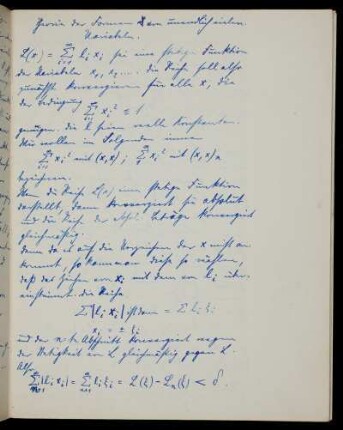 Theorie der Formen von unendlich vielen
Variabeln.
L(x) = ∑_{i=1}^{∞} l_i x_i sei eine stetige Funktion
der Variabeln x_1, x_2 ... die Reihe soll also
zunächst konvergieren für alle x, die
der Bedingung ∑_{i=1}^{∞} x_i² ≤ 1
genügen. die l seien reelle Konstanten.
Wir wollen im Folgenden immer
∑ x_i² mit (x,x) ; ∑ x_i² mit (x,x)_n
bezeichnen.
Wenn die Reihe L(x) eine stetige Funktion
darstellt, dann konvergiert sie absolut
und die Reihe der absol. Beträge konvergiert
gleichmäßig.
denn da es auf die Vorzeichen der x nicht an-
kommt, so kann man diese so wählen,
daß das Zeichen von x_i mit dem von l_i über-
einstimmt. die Reihe
∑ |l_i x_i| ist dann = ∑ l_i ξ_i
x_i = ± ξ_i
und der n-te Abschnitt konvergiert wegen
der Stetigkeit von L gleichmäßig gegen L.
Also
∑ |l_i x_i| = ∑ l_i ξ_i = L(ξ) - L_n(ξ) < δ.